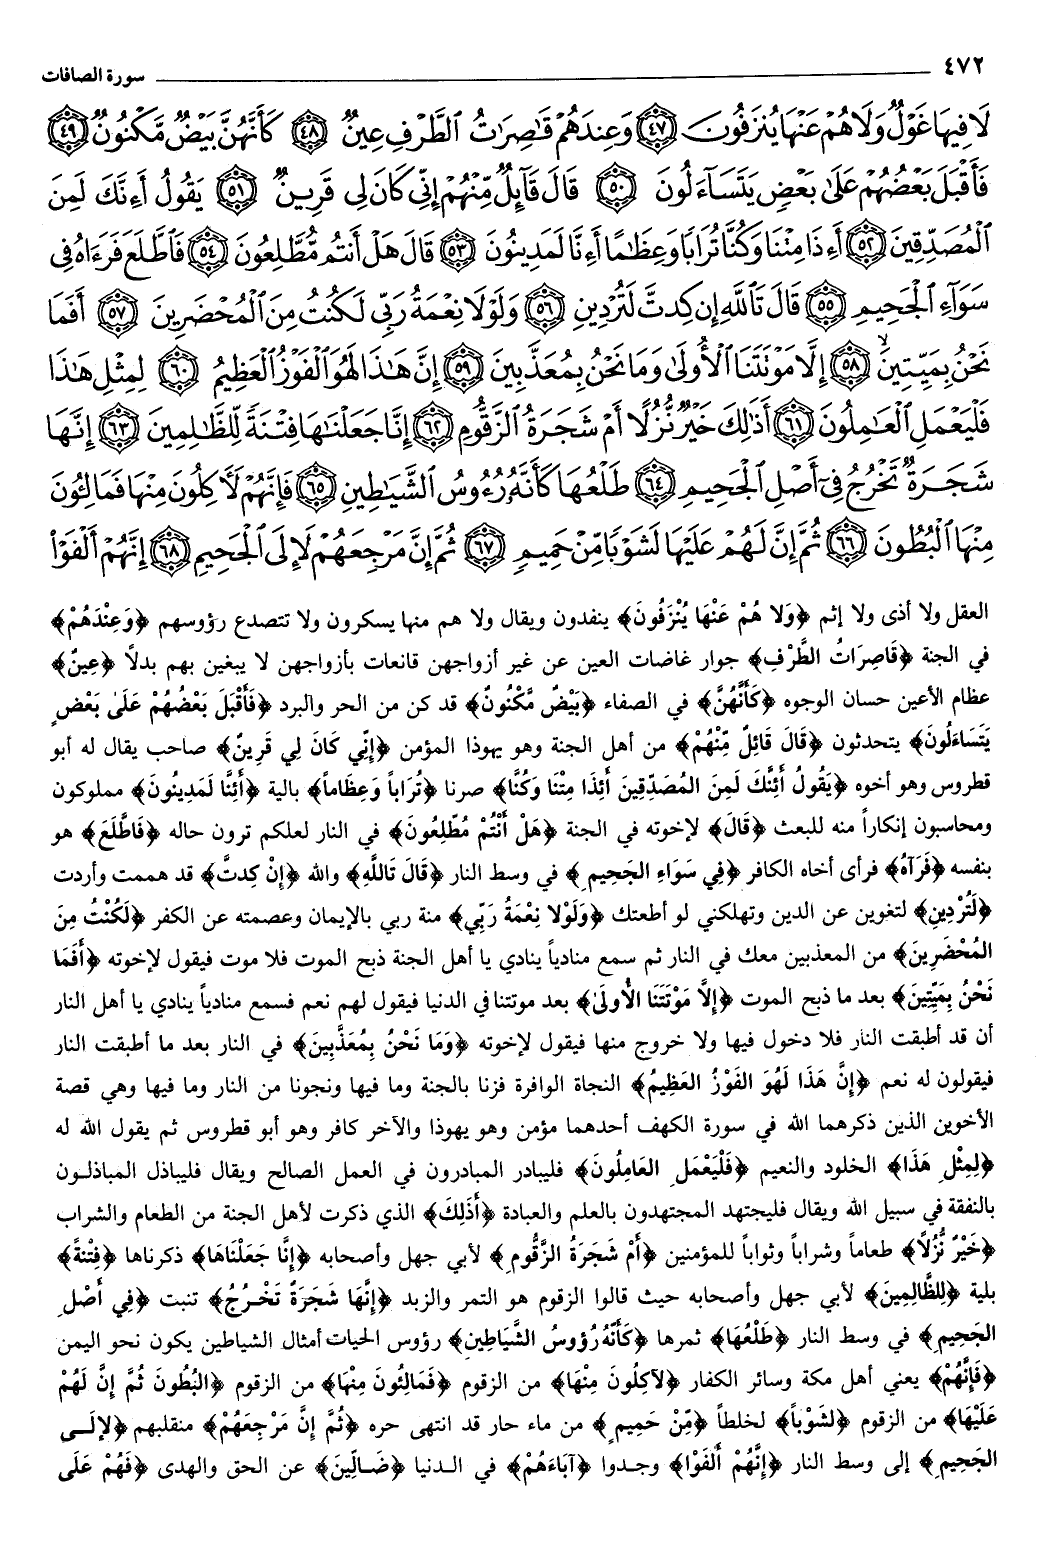 ٤٧٢ سورة الصافات
لَا فِيهَا غَوْلٌ وَلَا هُمْ عَنْهَا يُنزَفُونَ ٤٧ وَعِندَهُمْ قَٰصِرَٰتُ ٱلطَّرْفِ عِينٌ ٤٨ كَأَنَّهُنَّ بَيْضٌ مَّكْنُونٌ ٤٩
فَأَقْبَلَ بَعْضُهُمْ عَلَىٰ بَعْضٍ يَتَسَآءَلُونَ ٥٠ قَالَ قَآئِلٌ مِّنْهُمْ إِنِّى كَانَ لِى قَرِينٌ ٥١ يَقُولُ أَءِنَّكَ لَمِنَ
ٱلْمُصَدِّقِينَ ٥٢ أَءِذَا مِتْنَا وَكُنَّا تُرَابًا وَعِظَٰمًا أَءِنَّا لَمَدِينُونَ ٥٣ قَالَ هَلْ أَنتُم مُّطَّلِعُونَ ٥٤ فَٱطَّلَعَ فَرَءَاهُ فِى
سَوَآءِ ٱلْجَحِيمِ ٥٥ قَالَ تَٱللَّهِ إِن كِدتَّ لَتُرْدِينِ ٥٦ وَلَوْلَا نِعْمَةُ رَبِّى لَكُنتُ مِنَ ٱلْمُحْضَرِينَ ٥٧ أَفَمَا
نَحْنُ بِمَيِّتِينَ ٥٨ إِلَّا مَوْتَتَنَا ٱلْأُولَىٰ وَمَا نَحْنُ بِمُعَذَّبِينَ ٥٩ إِنَّ هَٰذَا لَهُوَ ٱلْفَوْزُ ٱلْعَظِيمُ ٦٠ لِمِثْلِ هَٰذَا
فَلْيَعْمَلِ ٱلْعَٰمِلُونَ ٦١ أَذَٰلِكَ خَيْرٌ نُّزُلًا أَمْ شَجَرَةُ ٱلزَّقُّومِ ٦٢ إِنَّا جَعَلْنَٰهَا فِتْنَةً لِّلظَّٰلِمِينَ ٦٣ إِنَّهَا
شَجَرَةٌ تَخْرُجُ فِىٓ أَصْلِ ٱلْجَحِيمِ ٦٤ طَلْعُهَا كَأَنَّهُۥ رُءُوسُ ٱلشَّيَٰطِينِ ٦٥ فَإِنَّهُمْ لَءَاكِلُونَ مِنْهَا فَمَالِـُٔونَ
مِنْهَا ٱلْبُطُونَ ٦٦ ثُمَّ إِنَّ لَهُمْ عَلَيْهَا لَشَوْبًا مِّنْ حَمِيمٍ ٦٧ ثُمَّ إِنَّ مَرْجِعَهُمْ لَإِلَى ٱلْجَحِيمِ ٦٨ إِنَّهُمْ أَلْفَوْا۟
العقل ولا أذى ولا إثم ﴿وَلا هُمْ عَنْهَا يُنْزَفُونَ﴾ ينفدون ويقال ولا هم منها يسكرون ولا تتصدع رؤوسهم ﴿وَعِنْدَهُمْ﴾
في الجنة ﴿قَاصِرَاتُ الطَّرْفِ﴾ جوار غاضات العين عن غير أزواجهن قانعات بأزواجهن لا يبغين بهم بدلاً ﴿عِينٌ﴾
عظام الأعين حسان الوجوه ﴿كَأَنَّهُنَّ﴾ في الصفاء ﴿بَيْضٌ مَّكْنُونٌ﴾ قد كن من الحر والبرد ﴿فَأَقْبَلَ بَعْضُهُمْ عَلَىٰ بَعْضٍ
يَتَسَاءَلُونَ﴾ يتحدثون ﴿قَالَ قَائِلٌ مِّنْهُمْ﴾ من أهل الجنة وهو يهوذا المؤمن ﴿إِنِّي كَانَ لِي قَرِينٌ﴾ صاحب يقال له أبو
قطروس وهو أخوه ﴿يَقُولُ أَئِنَّكَ لَمِنَ المُصَدِّقِينَ أَئِذَا مِتْنَا وَكُنَّا﴾ صرنا ﴿تُرَاباً وَعِظَاماً﴾ بالية ﴿أَئِنَّا لَمَدِينُونَ﴾ مملوكون
ومحاسبون إنكاراً منه للبعث ﴿قَالَ﴾ لإخوته في الجنة ﴿هَلْ أَنْتُمْ مُطَّلِعُونَ﴾ في النار لعلكم ترون حاله ﴿فَاطَّلَعَ﴾ هو
بنفسه ﴿فَرَآهُ﴾ فرأى أخاه الكافر ﴿فِي سَوَاءِ الجَحِيمِ﴾ في وسط النار ﴿قَالَ تَاللَّهِ﴾ والله ﴿إِنْ كِدتَّ﴾ قد هممت وأردت
﴿لَتُرْدِينِ﴾ لتغوين عن الدين وتهلكني لو أطعتك ﴿وَلَوْلا نِعْمَةُ رَبِّي﴾ منة ربي بالإيمان وعصمته عن الكفر ﴿لَكُنْتُ مِنَ
المُحْضَرِينَ﴾ من المعذبين معك في النار ثم سمع منادياً ينادي يا أهل الجنة ذبح الموت فلا موت فيقول لإخوته ﴿أَفَمَا
نَحْنُ بِمَيِّتِينَ﴾ بعد ما ذبح الموت ﴿إِلَّا مَوْتَتَنَا الأُولَىٰ﴾ بعد موتتنا في الدنيا فيقول لهم نعم فسمع منادياً ينادي يا أهل النار
أن قد أطبقت النار فلا دخول فيها ولا خروج منها فيقول لإخوته ﴿وَمَا نَحْنُ بِمُعَذَّبِينَ﴾ في النار بعد ما أطبقت النار
فيقولون له نعم ﴿إِنَّ هَذَا لَهُوَ الفَوْزُ العَظِيمُ﴾ النجاة الوافرة فزنا بالجنة وما فيها ونجونا من النار وما فيها وهي قصة
الأخوين الذين ذكرهما الله في سورة الكهف أحدهما مؤمن وهو يهوذا والآخر كافر وهو أبو قطروس ثم يقول الله له
﴿لِمِثْلِ هَذَا﴾ الخلود والنعيم ﴿فَلْيَعْمَلِ العَامِلُونَ﴾ فليبادر المبادرون في العمل الصالح ويقال فليباذل المباذلون
بالنفقة في سبيل الله ويقال فليجتهد المجتهدون بالعلم والعبادة ﴿أَذَلِكَ﴾ الذي ذكرت لأهل الجنة من الطعام والشراب
﴿خَيْرٌ نُّزُلاً﴾ طعاماً وشراباً وثواباً للمؤمنين ﴿أَمْ شَجَرَةُ الزَّقُّومِ﴾ لأبي جهل وأصحابه ﴿إِنَّا جَعَلْنَاهَا﴾ ذكرناها ﴿فِتْنَةً﴾
بلية ﴿لِلظَّالِمِينَ﴾ لأبي جهل وأصحابه حيث قالوا الزقوم هو التمر والزبد ﴿إِنَّهَا شَجَرَةٌ تَخْرُجُ﴾ تنبت ﴿فِي أَصْلِ
الجَحِيمِ﴾ في وسط النار ﴿طَلْعُهَا﴾ ثمرها ﴿كَأَنَّهُ رُؤُوسُ الشَّيَاطِينِ﴾ رؤوس الحيات أمثال الشياطين يكون نحو اليمن
﴿فَإِنَّهُمْ﴾ يعني أهل مكة وسائر الكفار ﴿لآكِلُونَ مِنْهَا﴾ من الزقوم ﴿فَمَالِئُونَ مِنْهَا﴾ من الزقوم ﴿البُطُونَ ثُمَّ إِنَّ لَهُمْ
عَلَيْهَا﴾ من الزقوم ﴿لَشَوْباً﴾ لخلطاً ﴿مِّنْ حَمِيمٍ﴾ من ماء حار قد انتهى حره ﴿ثُمَّ إِنَّ مَرْجِعَهُمْ﴾ منقلبهم ﴿لإِلَى
الجَحِيمِ﴾ إلى وسط النار ﴿إِنَّهُمْ أَلْفَوْا﴾ وجدوا ﴿آبَاءَهُمْ﴾ في الدنيا ﴿ضَالِّينَ﴾ عن الحق والهدى ﴿فَهُمْ عَلَى